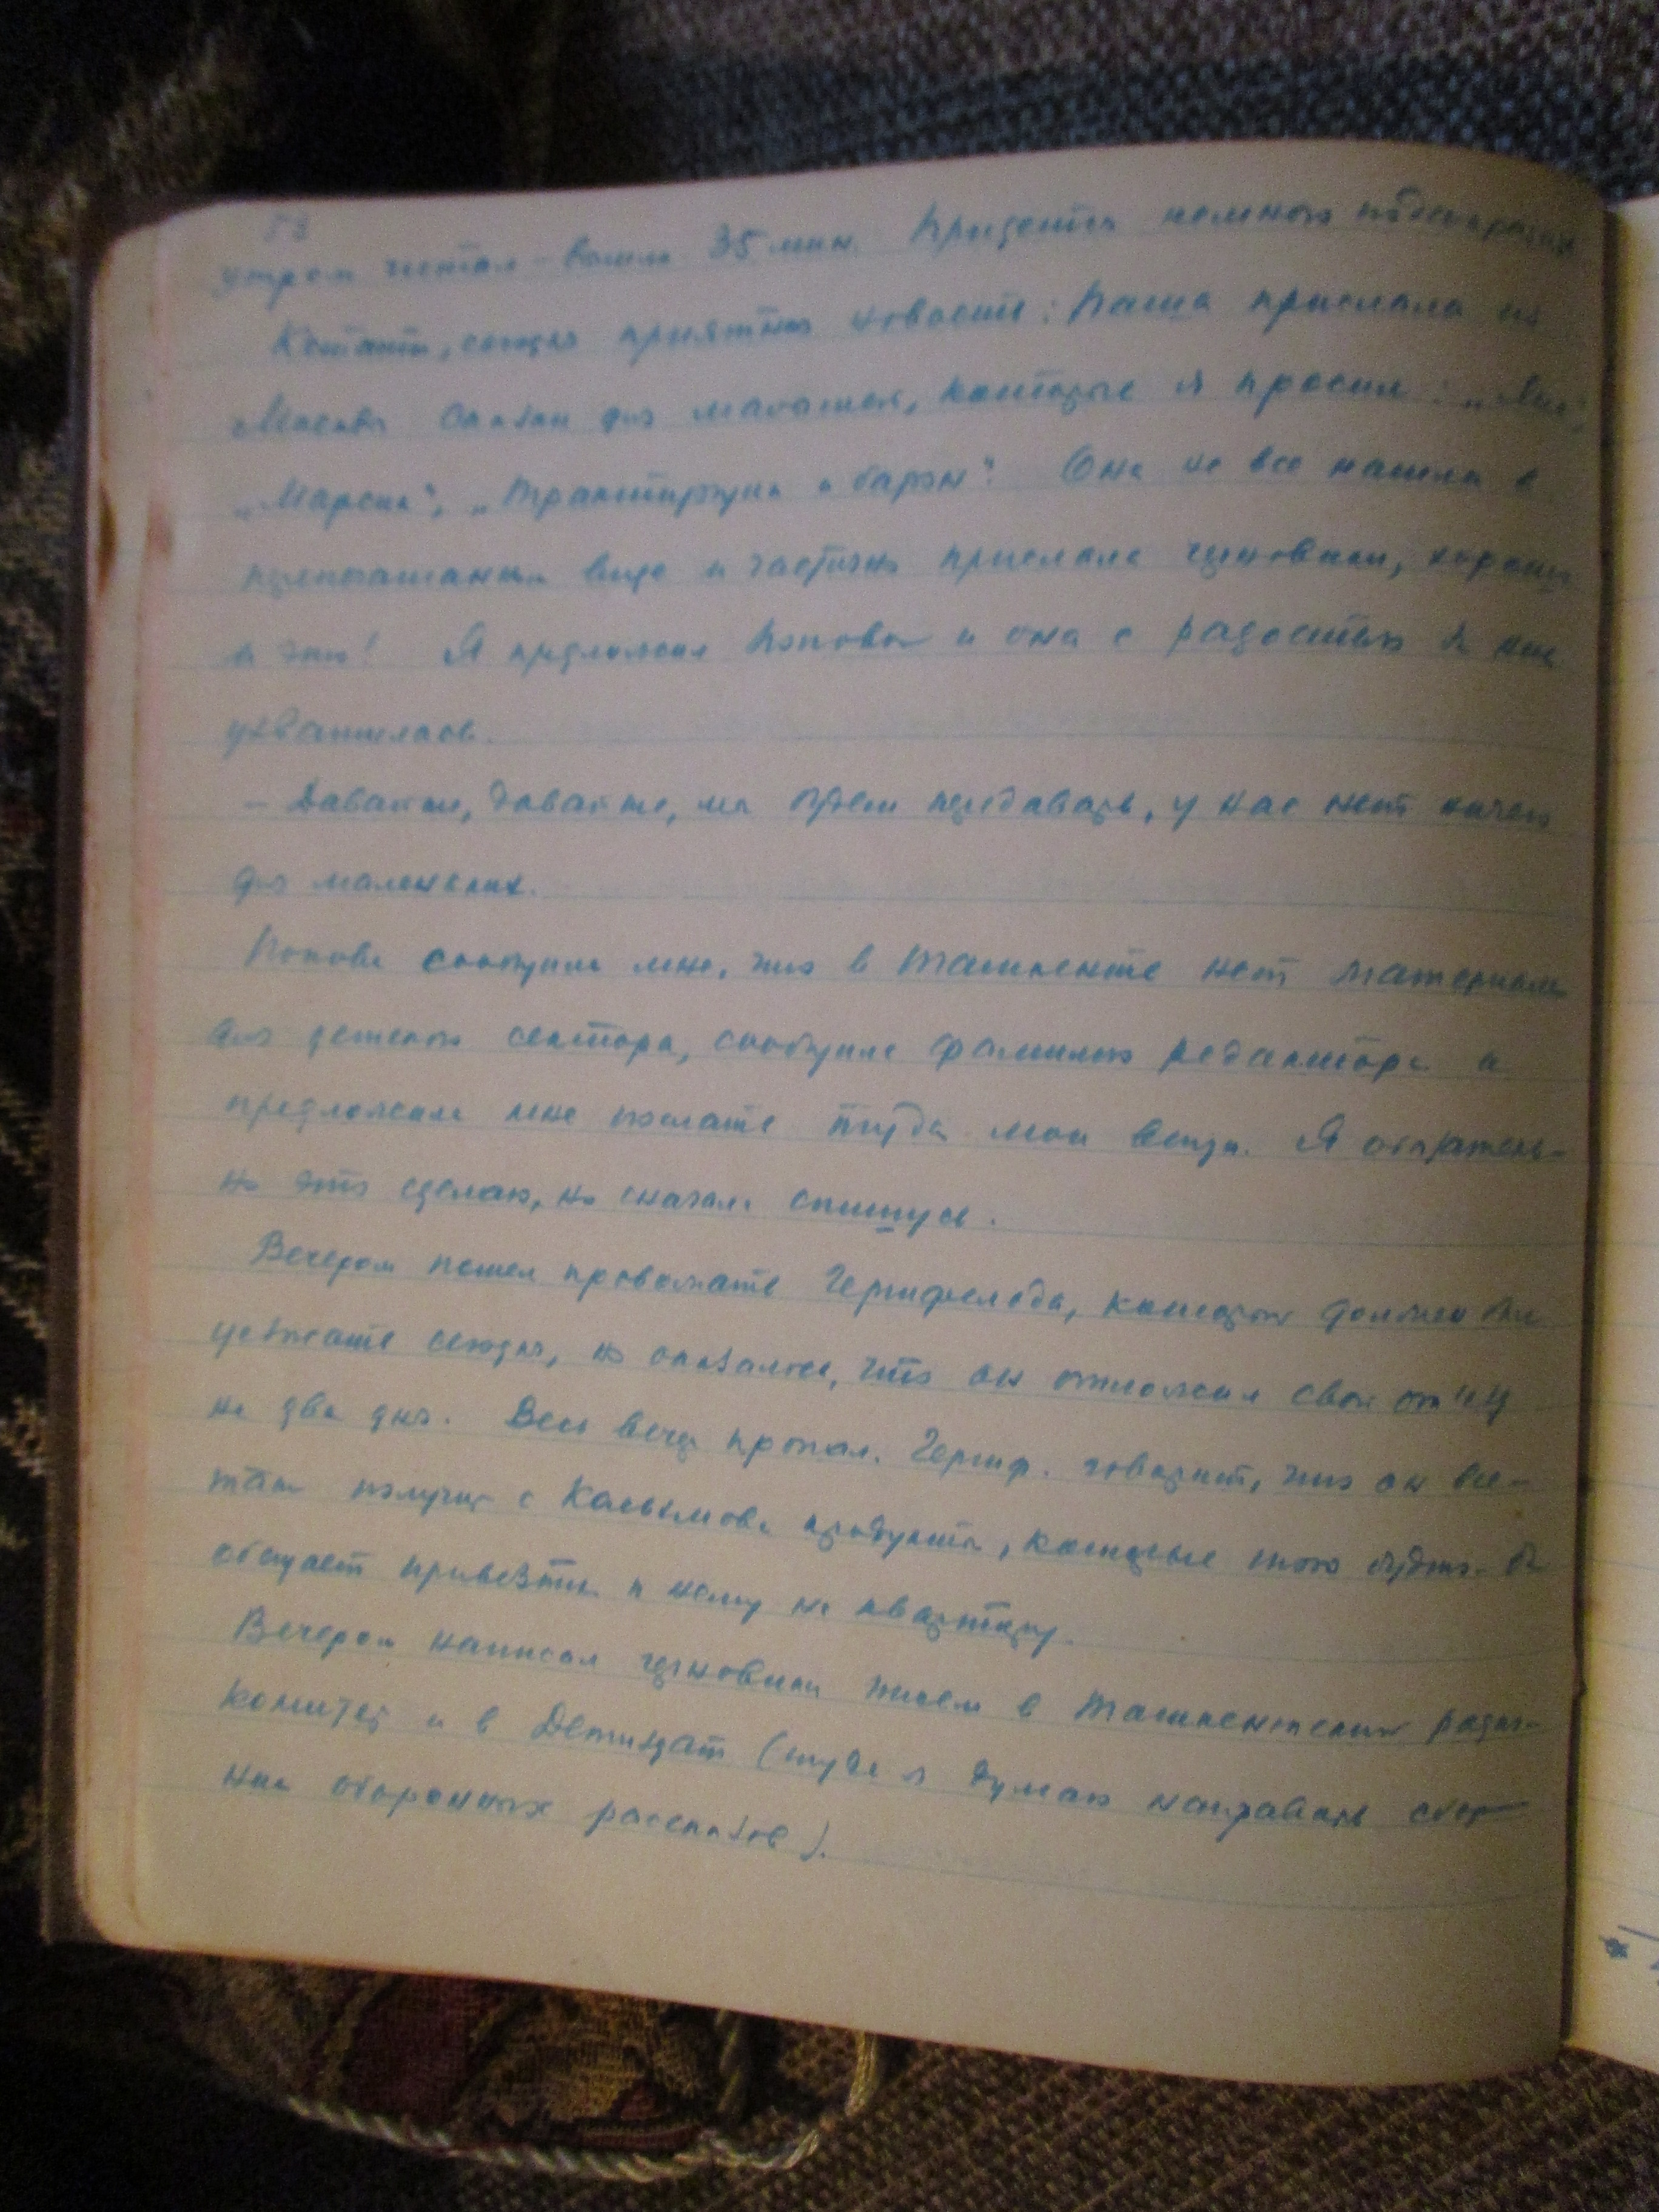 53
утром читал – вышло 35 мин. Придется немного подсократить
Кстати, сегодня приятная новость: Паша прислала из
Москвы сказки для малышей, которые я просил:
„Марсик", „Трактирщик и барон". Она не все нашла в
перепечатанном виде и частично прислала черновики, хорошо
и это! Я предложил Поповой и она с радостью за них
ухватилась.
– Давайте, давайте, мы будем передавать, у нас нет ничего
для маленьких.
Попова сообщила мне, что в Ташкенте нет материала
для детского сектора, сообщила фамилию редактора и
предложила мне послать туда мои вещи. Я обязатель-
но это сделаю, но сначала спишусь.
Вечером пошел провожать Герцфельда, который должен был
уезжать сегодня, но оказалось, что он отложил свой от'езд
на два дня. Весь вечер пропал. Герцф. говорит, что он все-
таки получит с Касымова продукты, которые тот будто-бы
обещает привезти к нему на квартиру.
Вечером написал черновики писем в Ташкентский радио-
комитет и в Детиздат (туда я думаю направить сбор-
ник оборонных рассказов).